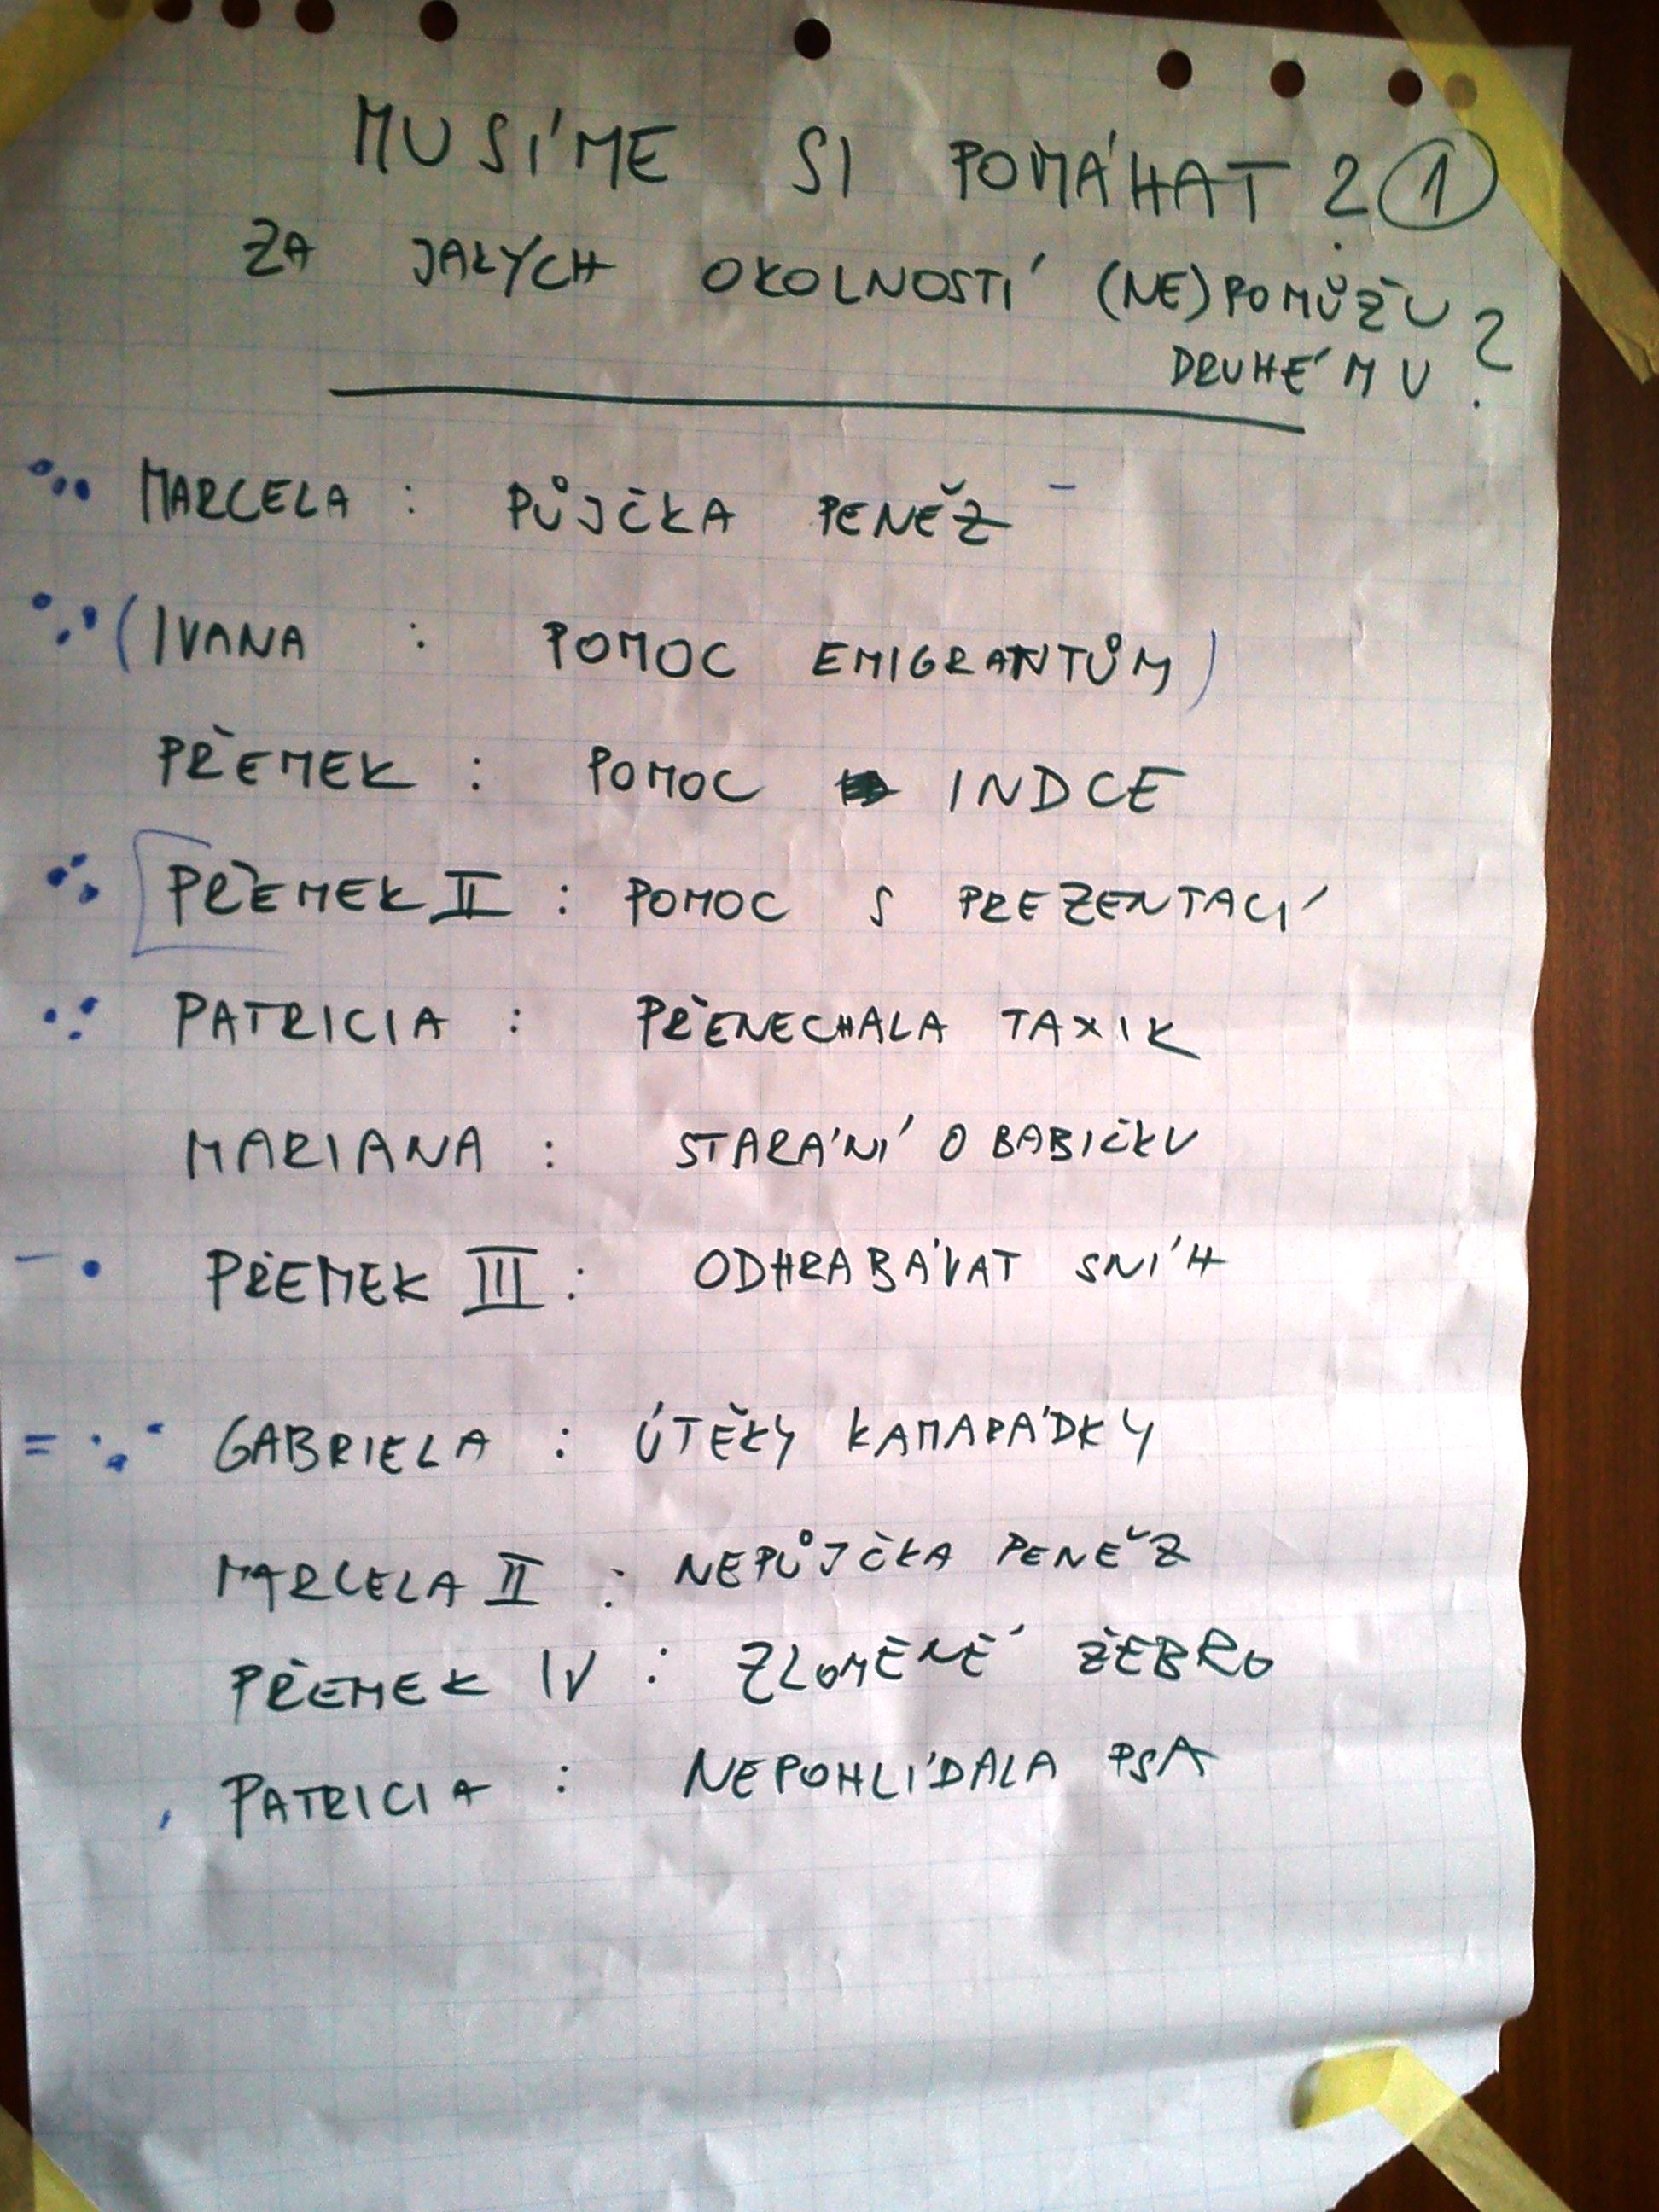 MUSÍME SI POMÁHAT? 1
ZA JAKÝCH OKOLNOSTÍ (NE)POMŮŽU
DRUHÉMU?
MARCELA : PŮJČKA PENĚZ -
(IVANA : POMOC EMIGRANTŮM)
PŘEMEK : POMOC INDCE
PŘEMEK II : POMOC S PREZENTACÍ
PATRICIA : PŘENECHALA TAXIK
MARIANA : STARÁNÍ O BABIČKU
PŘEMEK III : ODHRABÁVAT SNÍH
GABRIELA : ÚTĚKY KAMARÁDKY
MARCELA II : NEPŮJČKA PENĚZ
PŘEMEK IV : ZLOMENÉ ŽEBRO
PATRICIA : NEPOHLÍDALA PSA